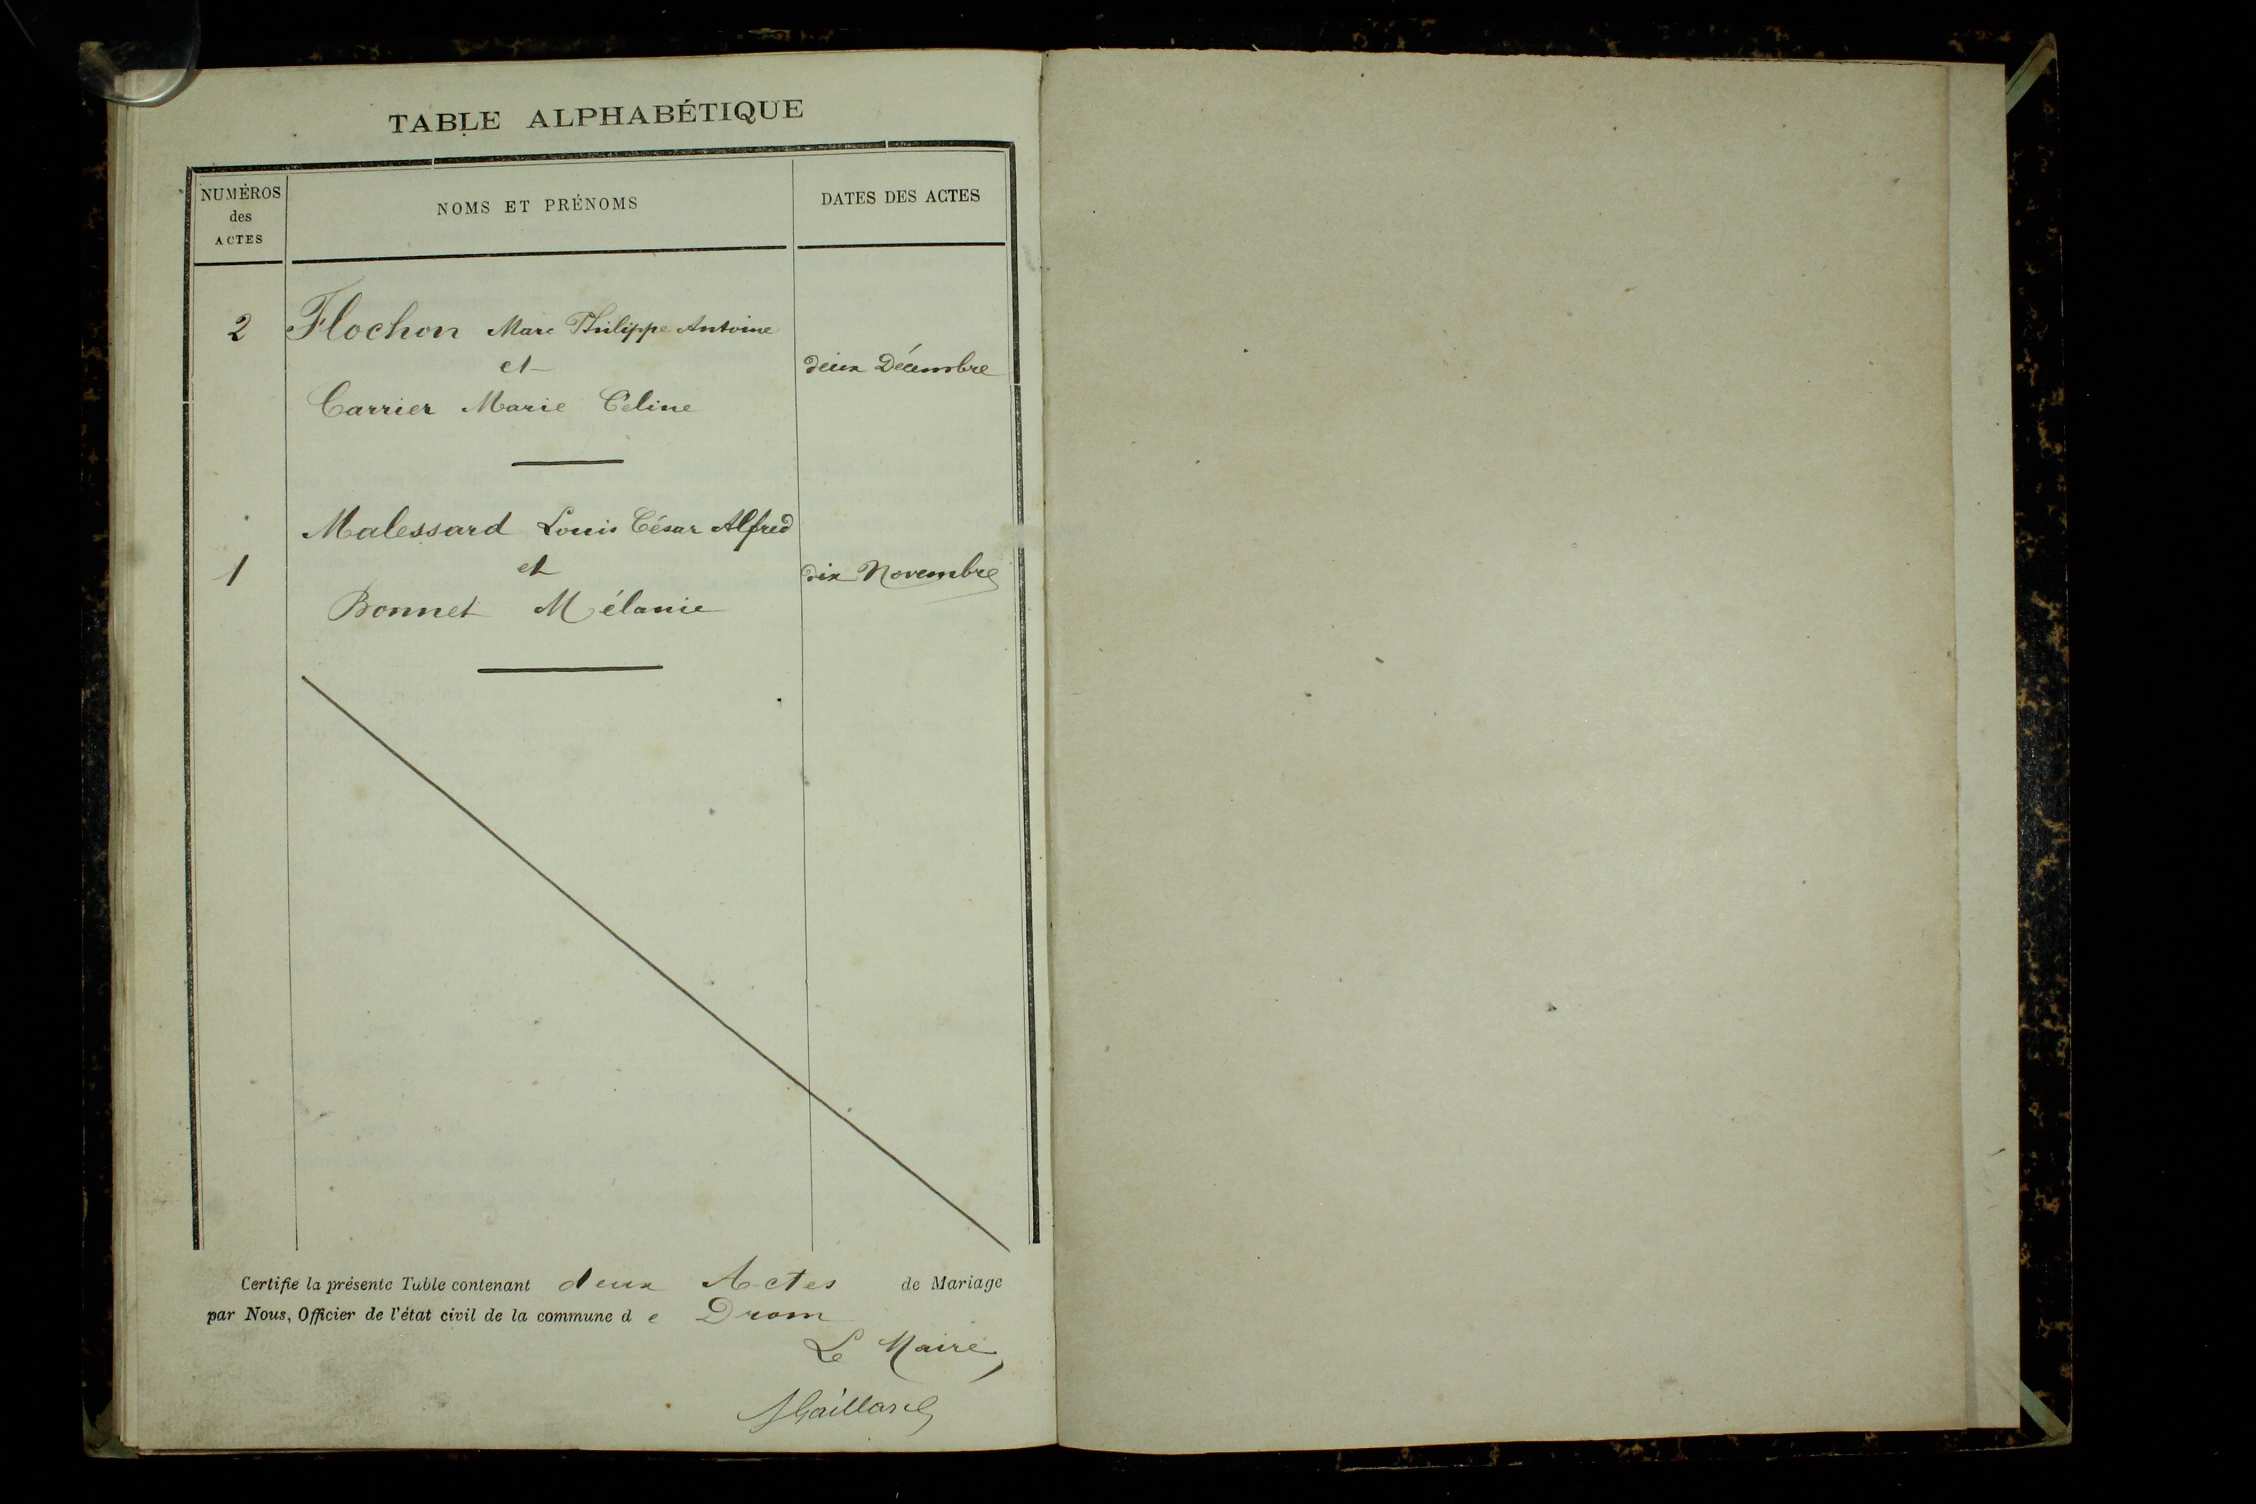 TABLE ALPHABÉTIQUE
NUMÉROS
des
ACTES
NOMS ET PRÉNOMS
DATES DES ACTES
2 Flochon Marc Philippe Antoine
et
deux Décembre
Carrier Marie Celine
Malessard Louis César Alfred
1 et dix Novembre
Bonnet Mélanie
Certifie la présente Table contenant deux Actes de Mariage
par Nous, Officier de l'état civil de la commune de Drom
Le Maire
Gaillard